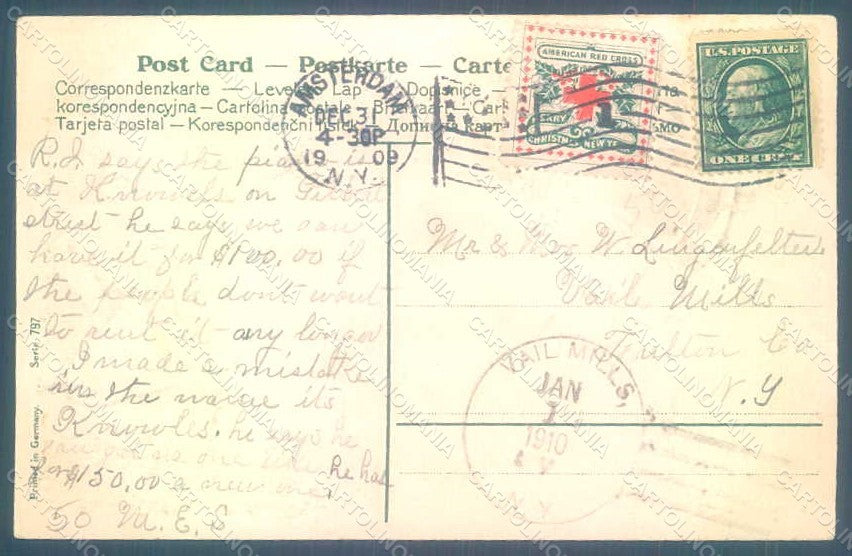 Post Card — Postkarte — Carte
Correspondenzkarte — Levelező Lap — Dopisnice
korespondencyjna — Cartolina postale — Briefkaart — Cart
Tarjeta postal — Korespondenční lístek — Дописна карт
AMSTERDAM
DEC 31
4-30P
1909
N.Y.
AMERICAN RED CROSS
MERRY
CHRISTMAS NEW YE
U.S. POSTAGE
ONE CENT
R.J. says the piano is
at Knowels on
street he says we can
have it for $100.00 if
the people dont want
to rent it any longer
I made a mistake
in the name its
Knowles. he says he
one
he has
$150.00 a new one
50 M.E.S
Mr & Mrs W. Lingenfelter
Vail Mills
Fulton Co
N.Y
VAIL MILLS,
JAN
1910
N.Y.
Printed in Germany. Serie 797
CARTOLINOMANIA